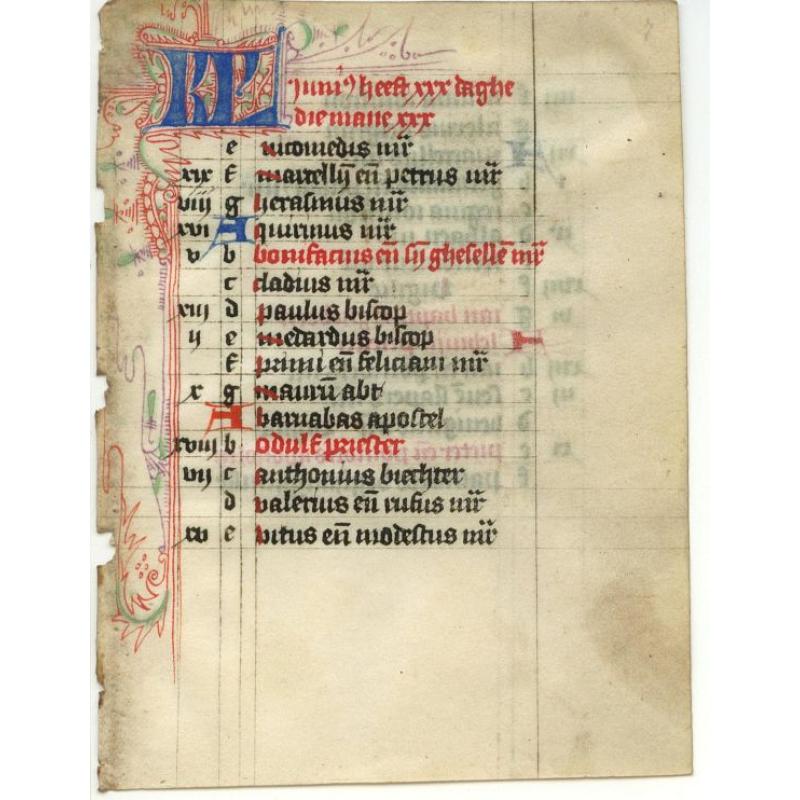 KL Juni9 heeft xxx daghe
die mane xxx
e nicomedis mr
xix f marcellij en petrus mr
viij g herasmus mr
xvi A quirinus mr
v b bonifacius en sij ghesellen mr
c cladius mr
xiij d paulus biscop
ij e medardus biscop
f primi en feliciani mr
x g mauru abt
A barnabas apostel
xviij b odulf priester
vij c anthonius biechter
d valerius en rufus mr
xv e vitus en modestus mr